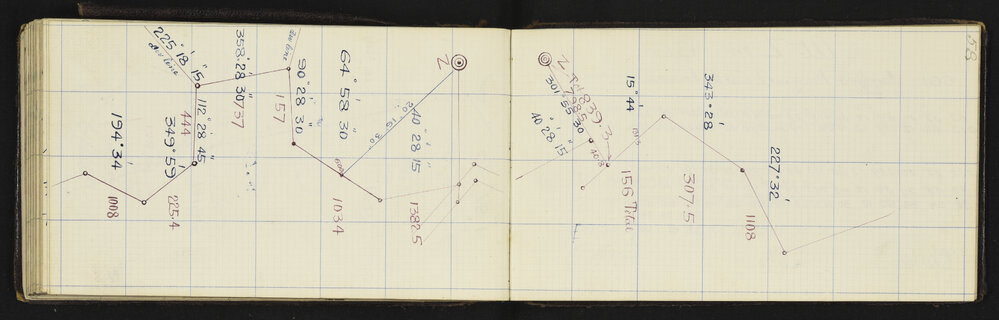 58
225° 18' 15"
aux line
194° 34'
1008
225.4
349° 59'
444
112° 28' 45"
358° 28' 30"
737
aux line
90° 28' 30"
157
64° 58' 30"
1034
20° 16' 30"
40° 28' 15"
1382.5
N
N
839.3
798.5
301° 55' 30"
40 28 15"
15° 44'
156 Total
343° 28'
307.5
227° 32'
1108